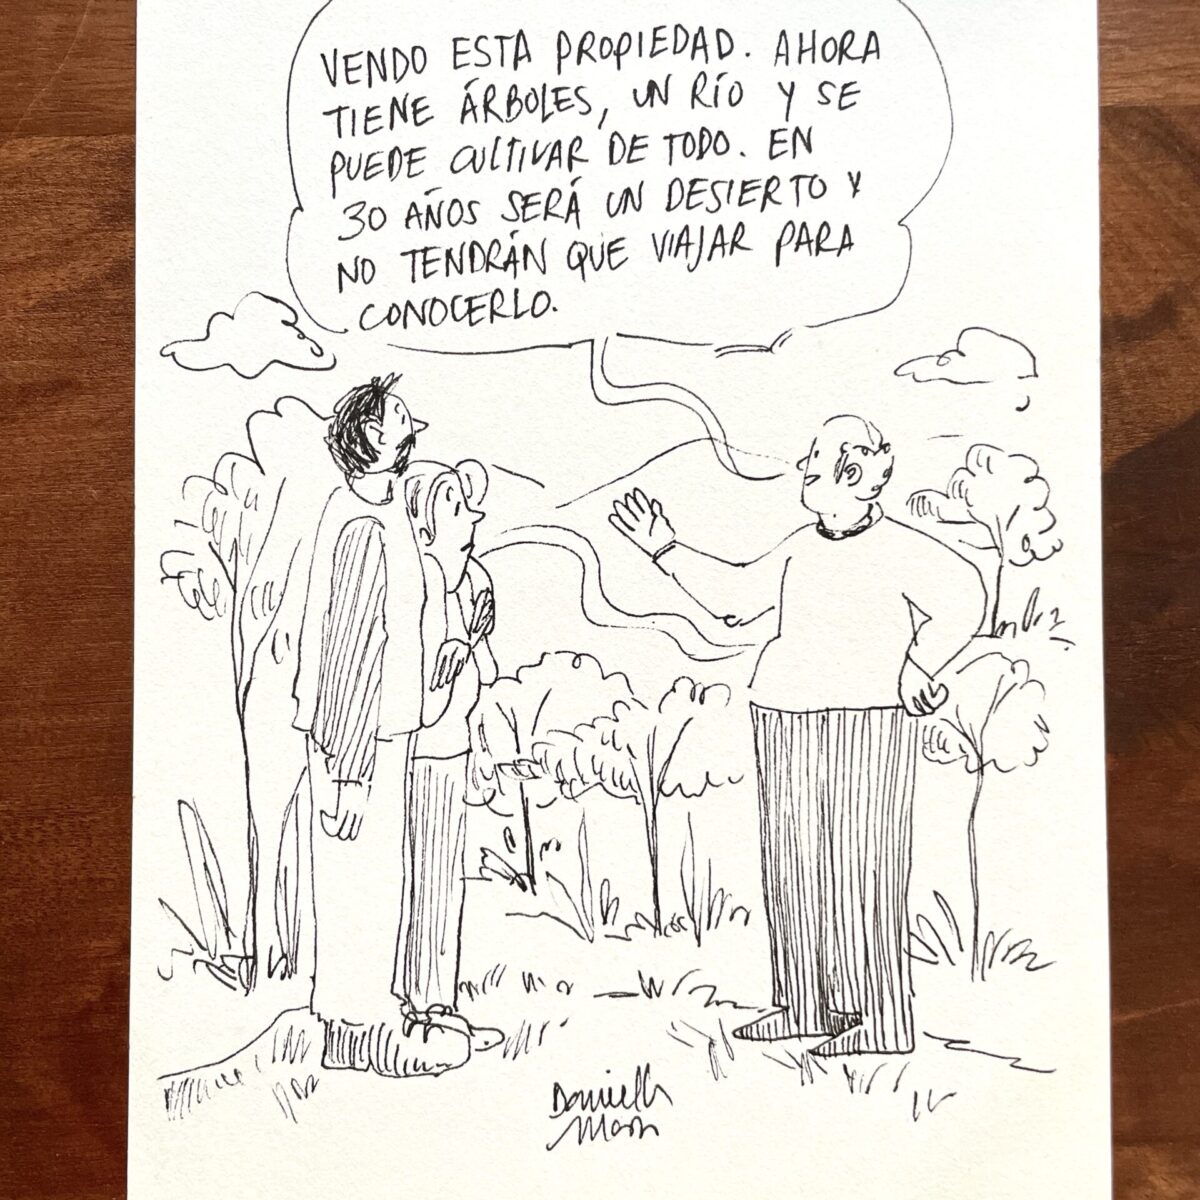 VENDO ESTA PROPIEDAD. AHORA
TIENE ÁRBOLES, UN RÍO Y SE
PUEDE CULTIVAR DE TODO. EN
30 AÑOS SERÁ UN DESIERTO Y
NO TENDRÁN QUE VIAJAR PARA
CONOCERLO.
Daniella